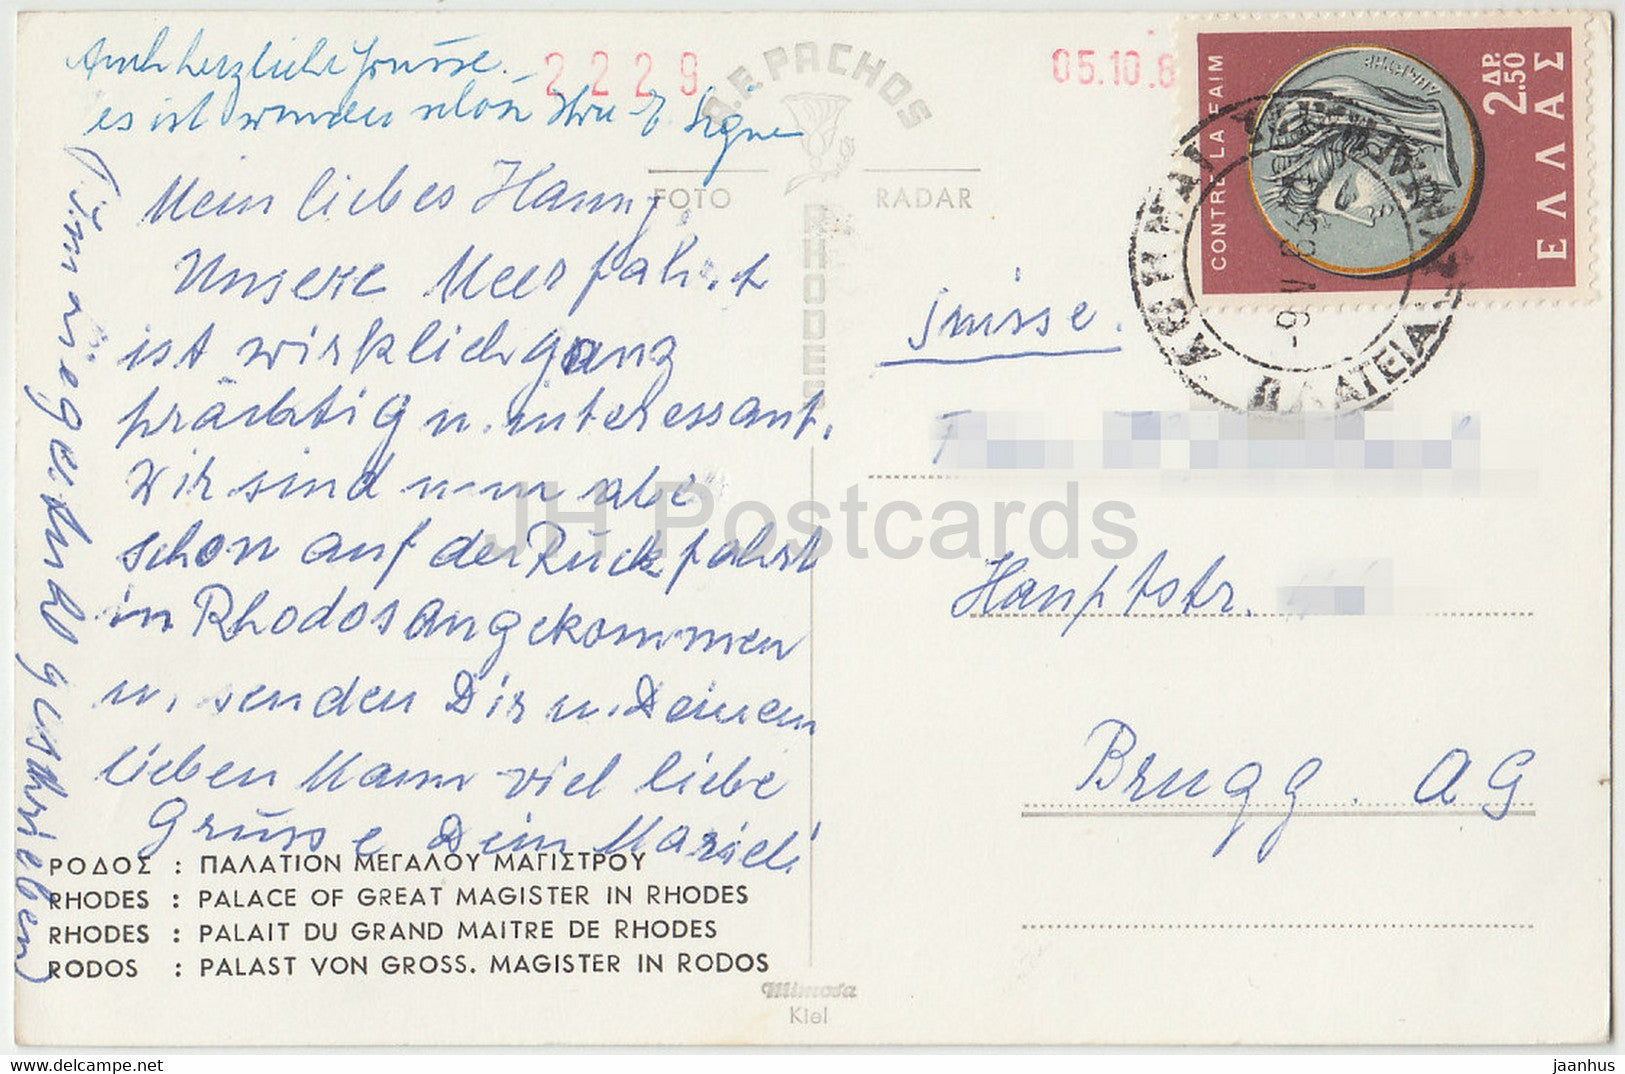 Auch herzliche Grüsse.
es ist wunderschön Ihre E. Signe
Mein liebes Hanny,
Unsere Meerfahrt
ist wirklich ganz
prächtig u. interessant.
Wir sind nun abe
schon auf der Rückfahrt
in Rhodos angekommen
u. senden Dir u. Deinem
lieben Mann viel liebe
Grüsse Dein Marieli
(im liegestuhl geschrieben)
2229
05.10.6
A.F. PACHOS
RHODES
FOTO RADAR
CONTRE LA FAIM
2.50 ΔΡ.
ΕΛΛΑΣ
ΔΗΜΗΤΗΡ
ΑΘΗΝΑΙ
ΠΛΑΤΕΙΑ
-9 V 63
Suisse.
Hauptstr.
Brugg. AG
ΡΟΔΟΣ : ΠΑΛΑΤΙΟΝ ΜΕΓΑΛΟΥ ΜΑΓΙΣΤΡΟΥ
RHODES : PALACE OF GREAT MAGISTER IN RHODES
RHODES : PALAIT DU GRAND MAITRE DE RHODES
RODOS : PALAST VON GROSS. MAGISTER IN RODOS
Mimosa
Kiel
JH Postcards
jaanhus